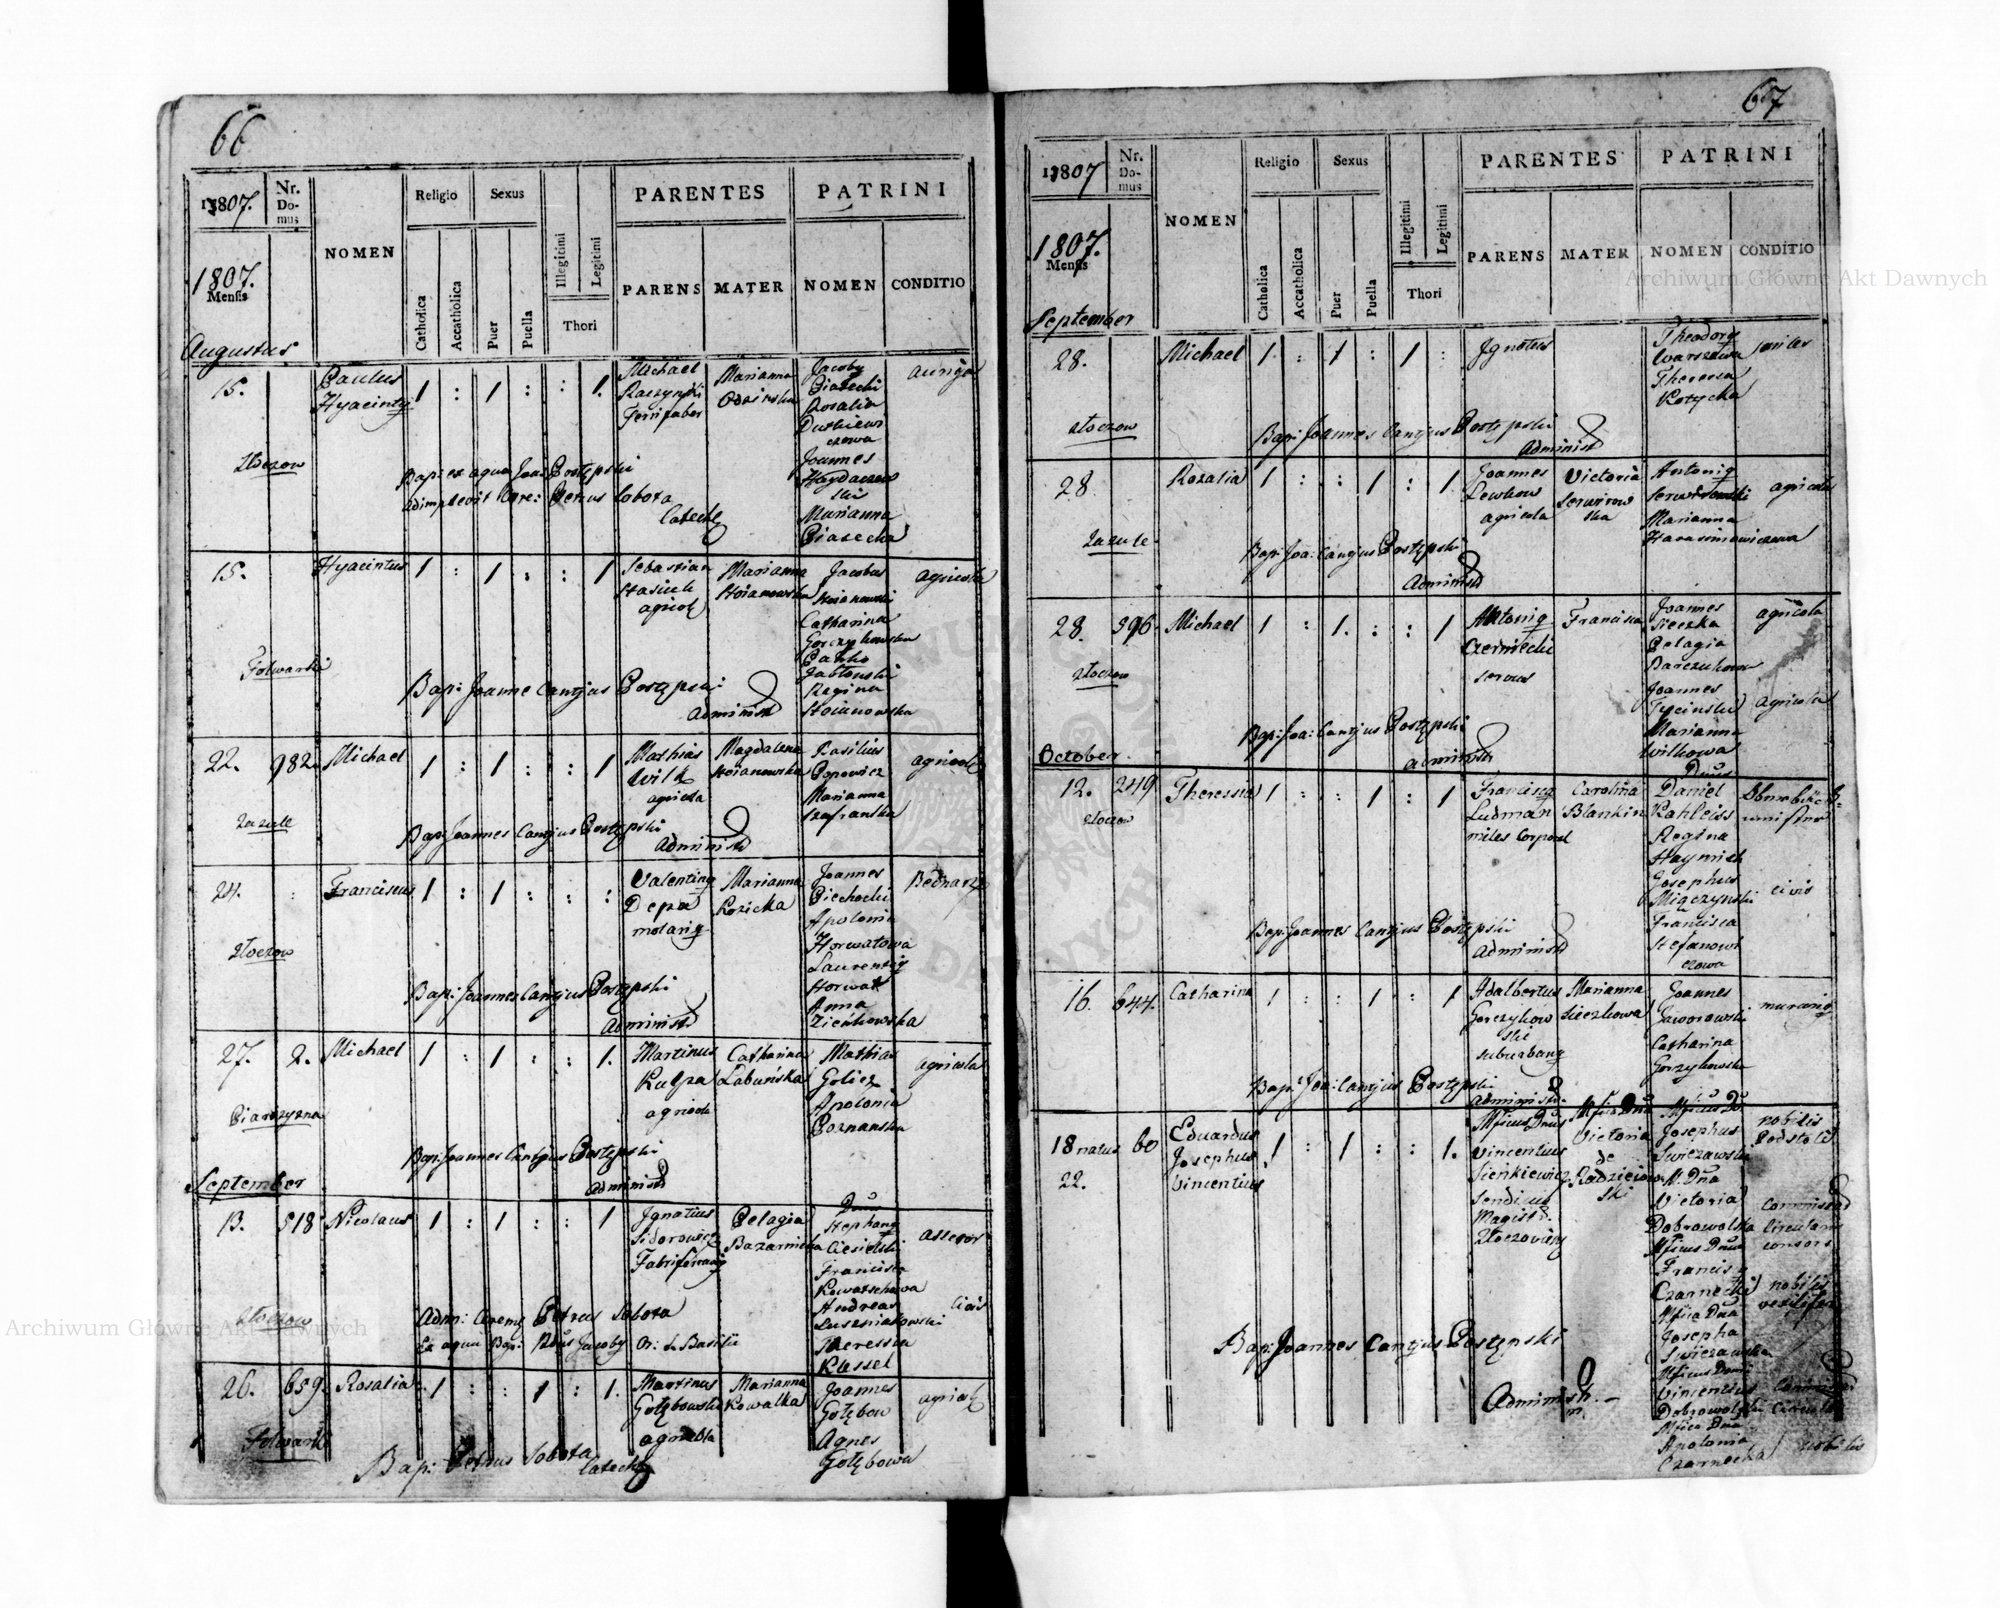 66
1807.
Nr. Domus
NOMEN
Religio
Sexus
PARENTES
PATRINI
1807.
Mensis
Catholica
Accatholica
Puer
Puella
Illegitimi
Legitimi
Thori
PARENS
MATER
NOMEN
CONDITIO
Augustus
15.
Złoczow
Paulus
Hyacinty
1 : 1 : : 1.
Michael
Raczynski
Ferrifaber
Marianna
Jacoby
Piasecki
Rosalia
Dutkiewi
czowa
Joannes
Haydaczew
ski
Marianna
Piasecka
auriga
Bap: ex aqua Joan: Postępski
adimplevit Cere: Petrus Sobota
Cateche
15.
Folwarki
Hyacintus
1 : 1 : : 1
Sebastian
Stasiuk
agricol
Marianna
Stoianowska
Jacobus
Stoianowski
Catharina
Gorczykowska
Jabłonski
Regina
Stoianowska
agricola
Bap: Joanne Cantjus Postępski
Administ
22. 982.
Zazule
Michael
1 : 1 : : 1
Mathias
Wilk
agricola
Magdalena
Stoianowska
Basilius
Popowicz
Marianna
Szafranska
agricola
Bap: Joannes Cantjus Postępski
Administ
24. :
Złoczow
Franciscus
1 : 1 : : :
Valentinq
Depa
molariq
Marianna
Kozicka
Joannes
Piechocki
Apolonia
Horwatowa
Laurentiq
Horwat
Anna
Zieńkowska
Bednarz
Bap: Joannes Cantjus Postępski
Administ
27. 2.
Piarczyzna
Michael
1 : 1 : : 1.
Martinus
Kulpa
agricola
Catharina
Łabuńska
Mathias
Golicz
Apolonia
Poznanska
agricola
Bap: Joannes Cantjus Postępski
Administ
September
13. 518
Złoczow
Nicolaus
1 : 1 : : 1
Ignatius
Sidorowicz
Pelagia
Bazarnicka
Dnus
Stephanq
Ciesielski
Francisca
Kowatschowa
Andreas
Theressia
Kussel
assesor
Civis
Adim: Cerem: Petrus Sobota
Ex aqua Bap: Rdus Jacoby Or: S. Basilii
26. 659.
Folwarki
Rosalia
1 : : 1 : 1.
Martinus
Gołębowski
agricola
Marianna
Kowalka
Joannes
Gołębow
Agnes
Gołębowa
agricol
Bap: Petrus Sobota
Cateche
67
1807
Nr. Domus
NOMEN
Religio
Sexus
PARENTES
PATRINI
1807.
Mensis
Catholica
Accatholica
Puer
Puella
Illegitimi
Legitimi
Thori
PARENS
MATER
NOMEN
CONDITIO
September
28.
Złoczow
Michael
1 : 1 : 1 :
Ignotus
Theodorq
Warszawa
Theressa
Kotycka
miles
Bap: Joannes Cantjus Postępski
Administ
28.
Zazule
Rozalia
1 : : 1 : 1
Joannes
Lewkow
agricola
Victoria
Serwirow
ska
Antoniq
Serwirowski
Marianna
Harasimowiczowa
agricola
Bap: Joa: Cantjus Postępski
Administ
28. 596
Złoczow
Michael
1 : 1. : : 1
Antoniq
Czerniecki
servus
Francisca
Joannes
Sieczka
Pelagia
Barczukowa
Joannes
Tycinski
Marianna
Wilkowa
agricola
agricola
Bap: Joa: Cantjus Postępski
Administ
October
12. 249
Złoczow
Theressia
1 : : 1 : 1
Franciscq
Ludman
miles Corporal
Carolina
Blankin
Dnus
Daniel
Kahleiss
Regina
Haymich
Josephus
Mięczynski
Francisca
Stefanowi
czowa
civis
Bap: Joannes Cantjus Postępski
Administ
16. 644.
Catharina
1 : : 1 : 1
Adalbertus
Gorczykow
ski
suburbanq
Marianna
Sieczkowa
Joannes
Jaworowski
Catharina
Gorzykowska
murariq
Bap: Joa: Cantjus Postępski
Administ.
18 natus 60
22.
Eduardus
Josephus
Vincentius
1 : 1 : : 1.
Mficus Dnus
Vincentius
Sieńkiewicz
Sendicus
Magistr.
Mfica Dna
Victoria
de
Radzieiow
ski
Mficus D.
Josephus
Swiezawski
M. Dna
Victoria
Dobrowolska
Mficus Dnus
Francisq
Czarnecki
Mfica Dna
Josepha
Swiezawska
Mficus Dnus
Vincentius
Dobrowolski
Mfica Dna
Apolonia
Czarnecka
nobilis
Circularis
consors
nobilis
vexilifer
nobilis
Bap: Joannes Cantjus Postępski
Administ.
Archiwum Główne Akt Dawnych
Archiwum Główne Akt Dawnych